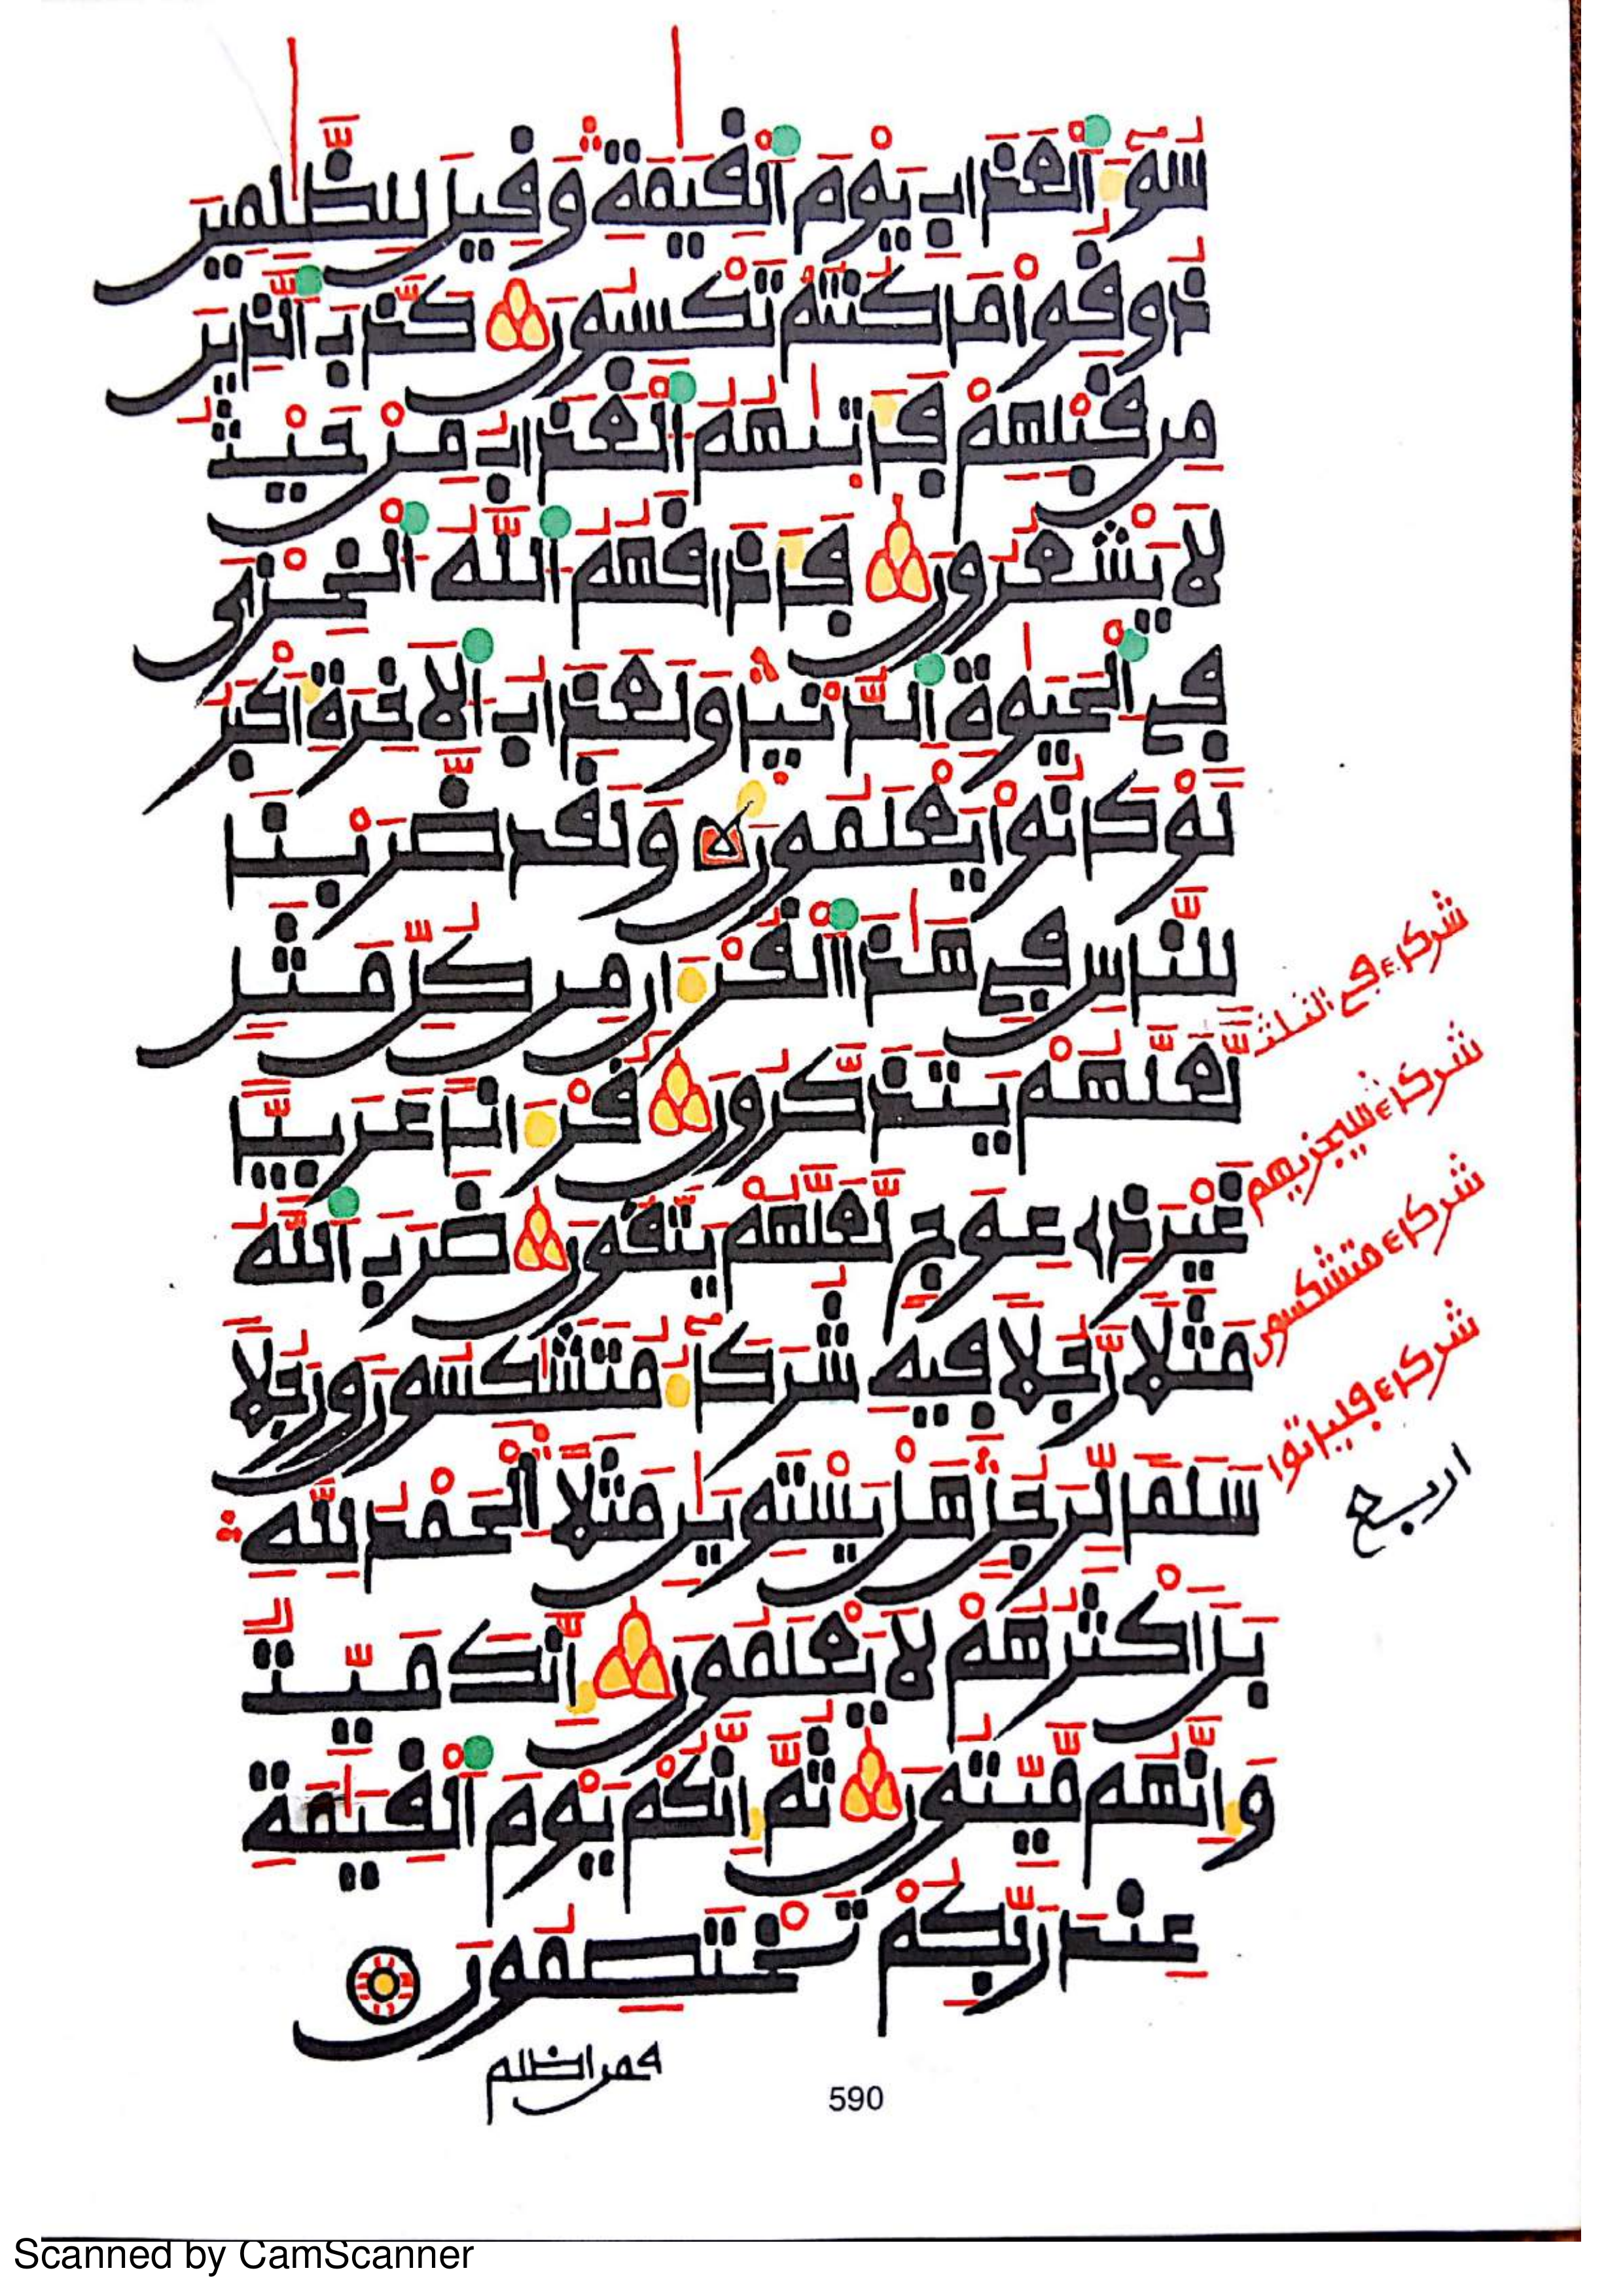 سُوٓءَ اَ۬لْعَذَابِ يَوْمَ اَ۬لْقِيَٰمَةِ وَقِيلَ لِلظَّٰلِمِينَ
ذُوقُواْ مَا كُنتُمْ تَكْسِبُونَ كَذَّبَ اَ۬لذِينَ
مِن قَبْلِهِمْ فَأَتَىٰهُمُ اُ۬لْعَذَابُ مِنْ حَيْثُ
لَا يَشْعُرُونَ فَأَذَاقَهُمُ اُ۬للَّهُ اُ۬لْخِزْيَ
فِے اِ۬لْحَيَوٰةِ اِ۬لدُّنْيَا وَلَعَذَابُ اُ۬لَاخِرَةِ أَكْبَرُ
لَوْ كَانُواْ يَعْلَمُونَ وَلَقَد ضَّرَبْنَا
لِلنَّاسِ فِے هَٰذَا اَ۬لْقُرْءَانِ مِن كُلِّ مَثَلٖ
لَّعَلَّهُمْ يَتَذَكَّرُونَ قُرْءَاناً عَرَبِيّاً
غَيْرَ ذِے عِوَجٖ لَّعَلَّهُمْ يَتَّقُونَ ضَرَبَ اَ۬للَّهُ
مَثَلاٗ رَّجُلاٗ فِيهِ شُرَكَآءُ مُتَشَٰكِسُونَ وَرَجُلاٗ
سَلَماٗ لِّرَجُلٍ هَلْ يَسْتَوِيَٰنِ مَثَلاً اِ۬لْحَمْدُ لِلهِ
بَلَ اَكْثَرُهُمْ لَا يَعْلَمُونَ إِنَّكَ مَيِّتٞ
وَإِنَّهُم مَّيِّتُونَ ثُمَّ إِنَّكُمْ يَوْمَ اَ۬لْقِيَٰمَةِ
عِندَ رَبِّكُمْ تَخْتَصِمُونَ
شركاء في الثلث
شركاء سيجزيهم
شركاء متشكسون
شركاء فلياتوا
اربع
فمن اظلم
590
Scanned by CamScanner